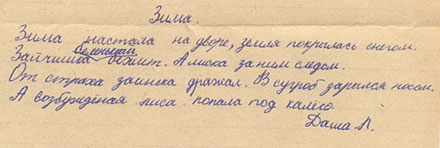 Зима.
Зима настала на дворе, земля покрылась снегом.
Зайчишка беленький бежит. А лиска за ним следом.
От страха заинька дражал. В сугроб зарылся носом.
А возбуждёная лиса попала под калесо.
Даша Л.